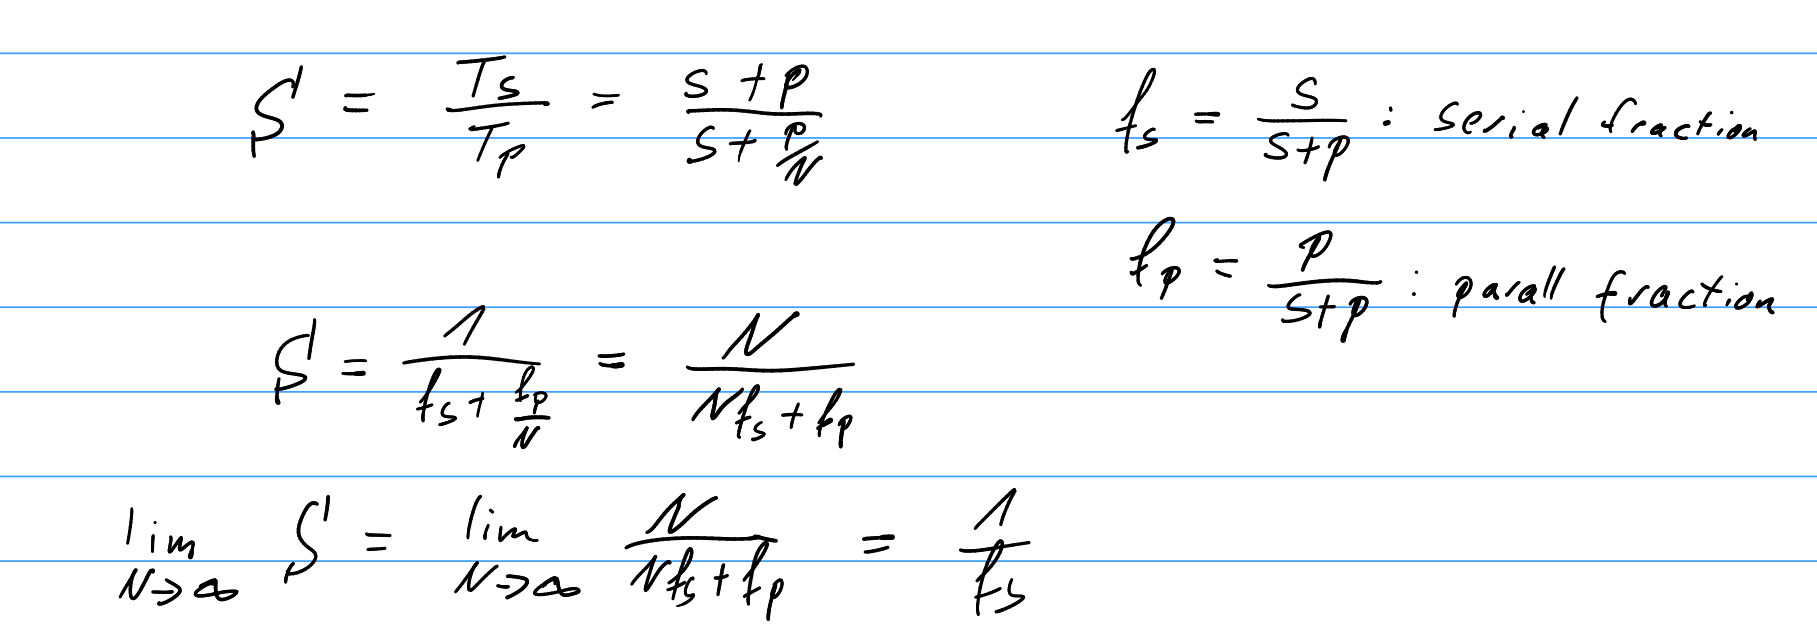 S = Ts/Tp = (s + p)/(s + p/N)    fs = s/(s+p) : serial fraction
fp = p/(s+p) : parall fraction
S = 1/(fs + fp/N) = N/(Nfs + fp)
lim N→∞ S = lim N→∞ N/(Nfs + fp) = 1/fs